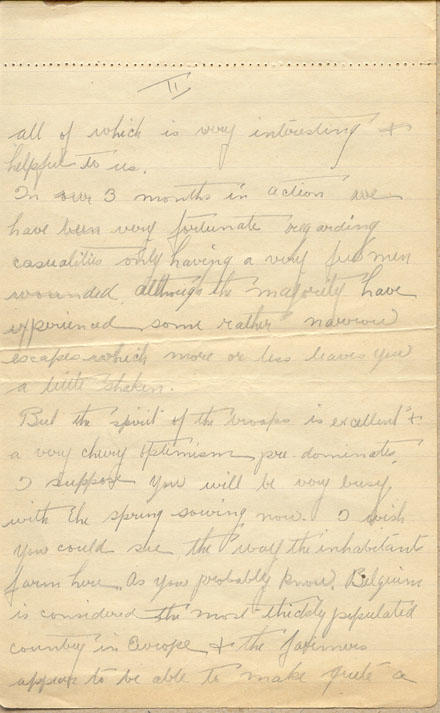 II
all of which is very interesting &
helpful to us.
In our 3 months in action we
have been very fortunate regarding
casualitis only having a very few men
wounded, although the majority have
experienced some rather narrow
escapes which more or less leaves you
a little shaken.
But the spirit of the troops is excellent &
a very cheery optimism pre-dominates.
I suppose you will be very busy,
with the spring sowing now. I wish
you could see the way the inhabitants
farm here. As you probably know, Belgium
is considered the most thickly populated
country in Europe & the farmers
appear to be able to make quite a